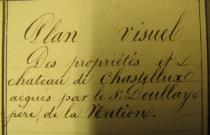 Plan visuel
Des propriétés et
chateau de Chastellux
acquis par le Sr Doullay
père, de la Nation.